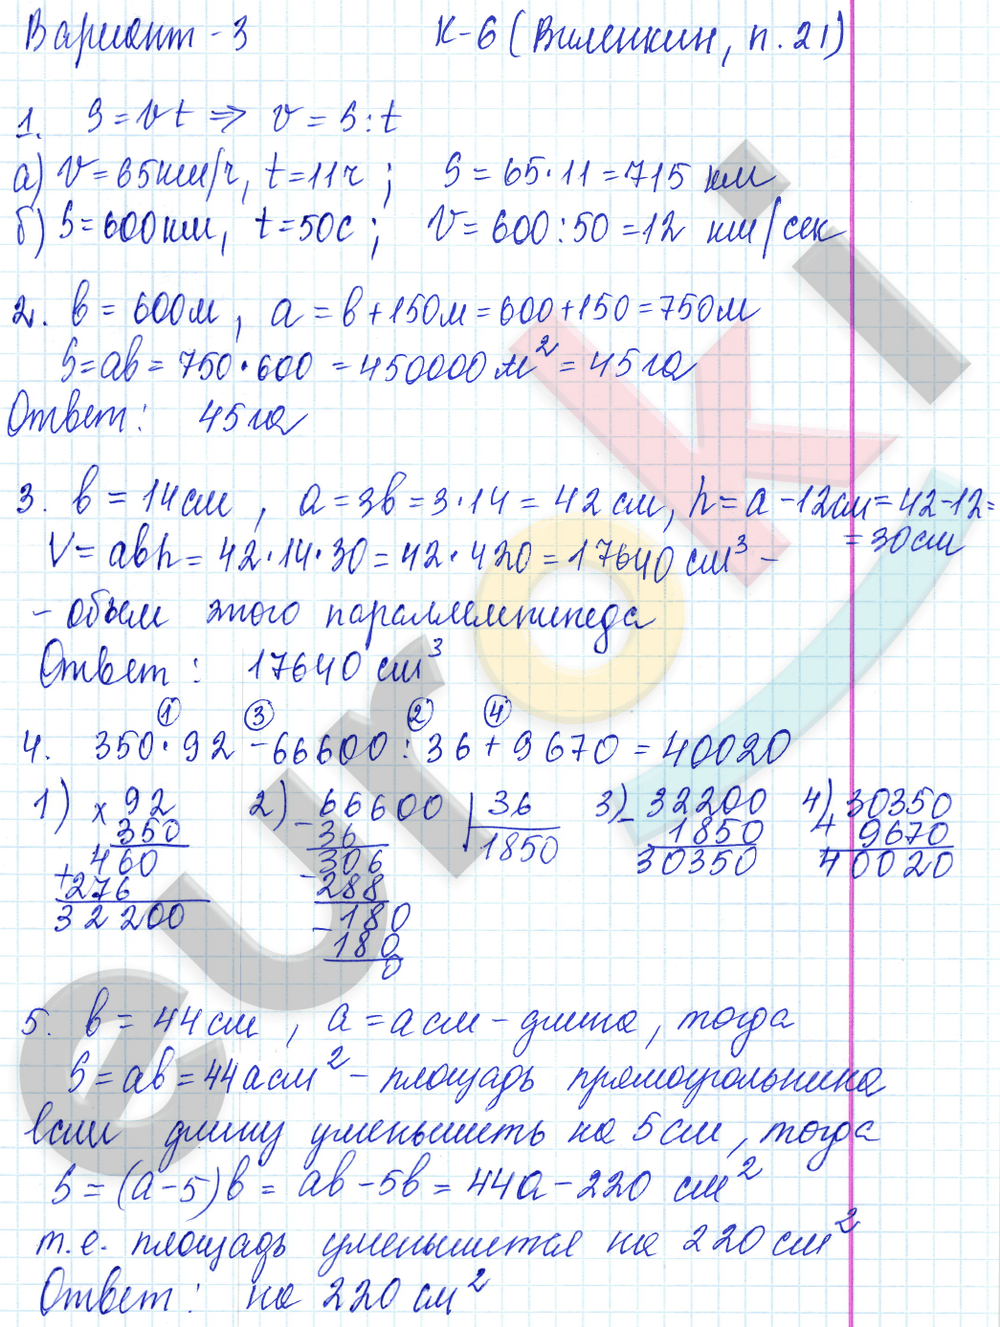 Вариант - 3 К-6 (Виленкин, п. 21)
1. S = vt ⇒ v = S : t
а) v = 65км/ч, t = 11ч ; S = 65 · 11 = 715 км
б) S = 600км, t = 50с ; v = 600 : 50 = 12 км/сек
2. b = 600м, a = b + 150м = 600 + 150 = 750м
S = ab = 750 · 600 = 450000 м² = 45га
Ответ: 45га
3. b = 14см, a = 3b = 3 · 14 = 42 см, h = a - 12см = 42 - 12 =
= 30см
V = abh = 42 · 14 · 30 = 42 · 420 = 17640 см³ -
- объем этого параллелепипеда
Ответ: 17640 см³
① ③ ② ④
4. 350 · 92 - 66600 : 36 + 9670 = 40020
1) × 92 2) - 66600 | 36 3) - 32200 4) + 30350
350 36 1850 1850 9670
460 306 30350 40020
+ 276 - 288
32200 - 180
180
0
5. b = 44см, a = a см - длина, тогда
S = ab = 44a см² - площадь прямоугольника
Если длину уменьшить на 5см, тогда
S = (a - 5)b = ab - 5b = 44a - 220 см²
т.е. площадь уменьшится на 220 см²
Ответ: на 220 см²
euroki